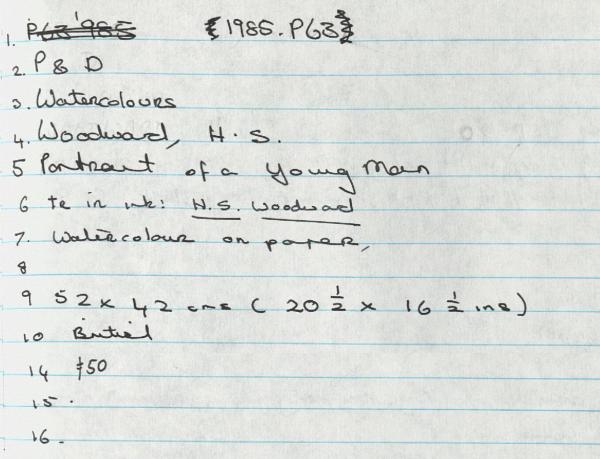 1. P63'985 {1985.P63}
2. P & D
3. Watercolours
4. Woodward, H.S.
5 Portrait of a Young Man
6 in ink: H.S. Woodward
7. Watercolour on paper,
8
9 52 x 42 cms ( 20 ½ x 16 ½ ins)
10 British
14 £50
15.
16.